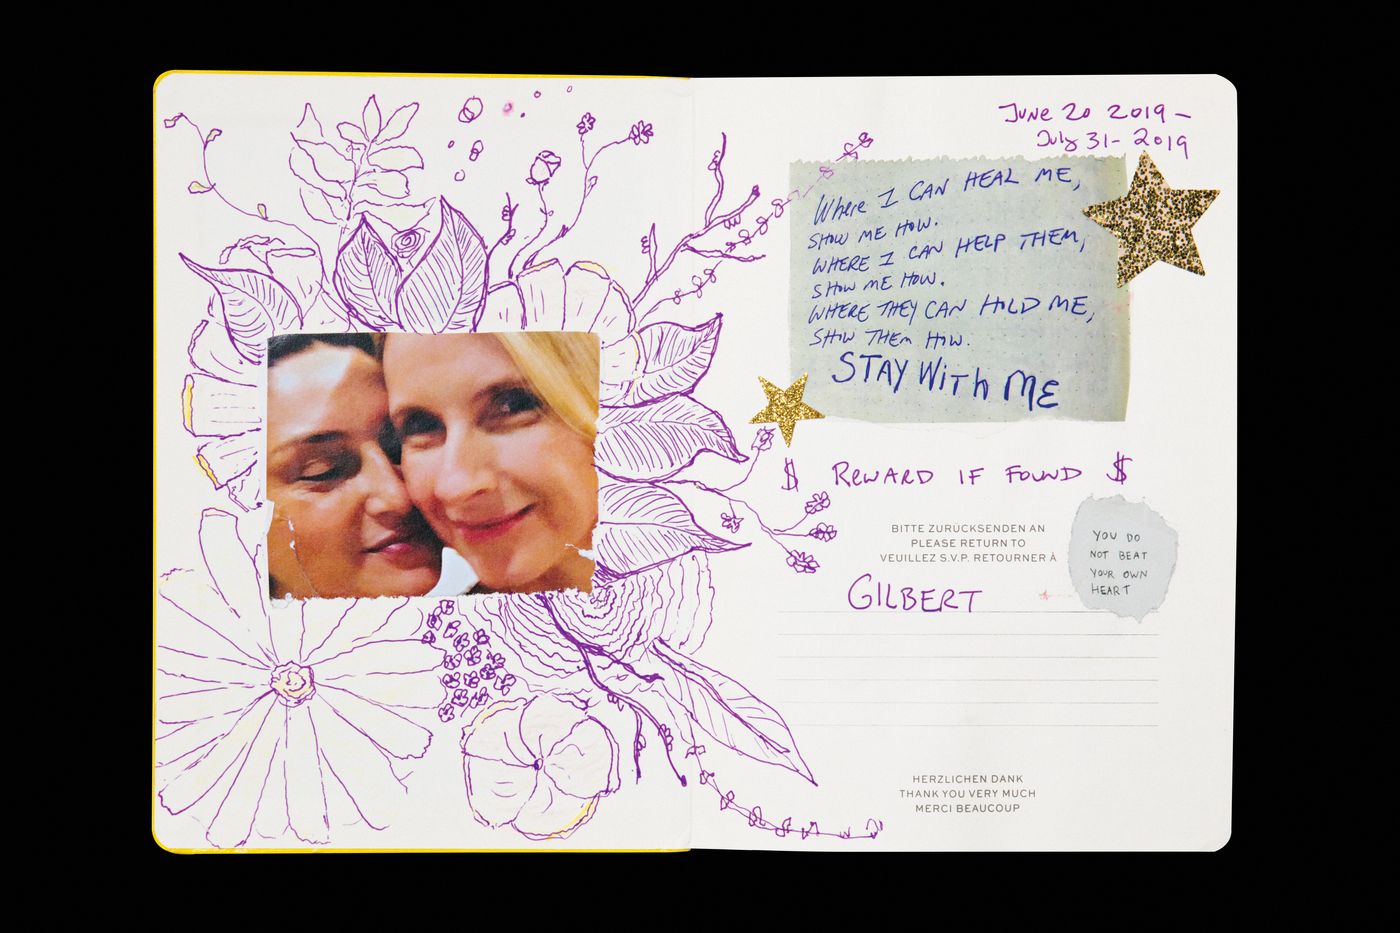 June 20 2019 –
July 31 – 2019
Where I CAN HEAL ME,
SHOW ME HOW.
WHERE I CAN HELP THEM,
SHOW ME HOW.
WHERE THEY CAN HOLD ME,
SHOW THEM HOW.
STAY WITH ME
$ REWARD IF FOUND $
BITTE ZURÜCKSENDEN AN
PLEASE RETURN TO
VEUILLEZ S.V.P. RETOURNER À
YOU DO
NOT BEAT
YOUR OWN
HEART
GILBERT
HERZLICHEN DANK
THANK YOU VERY MUCH
MERCI BEAUCOUP